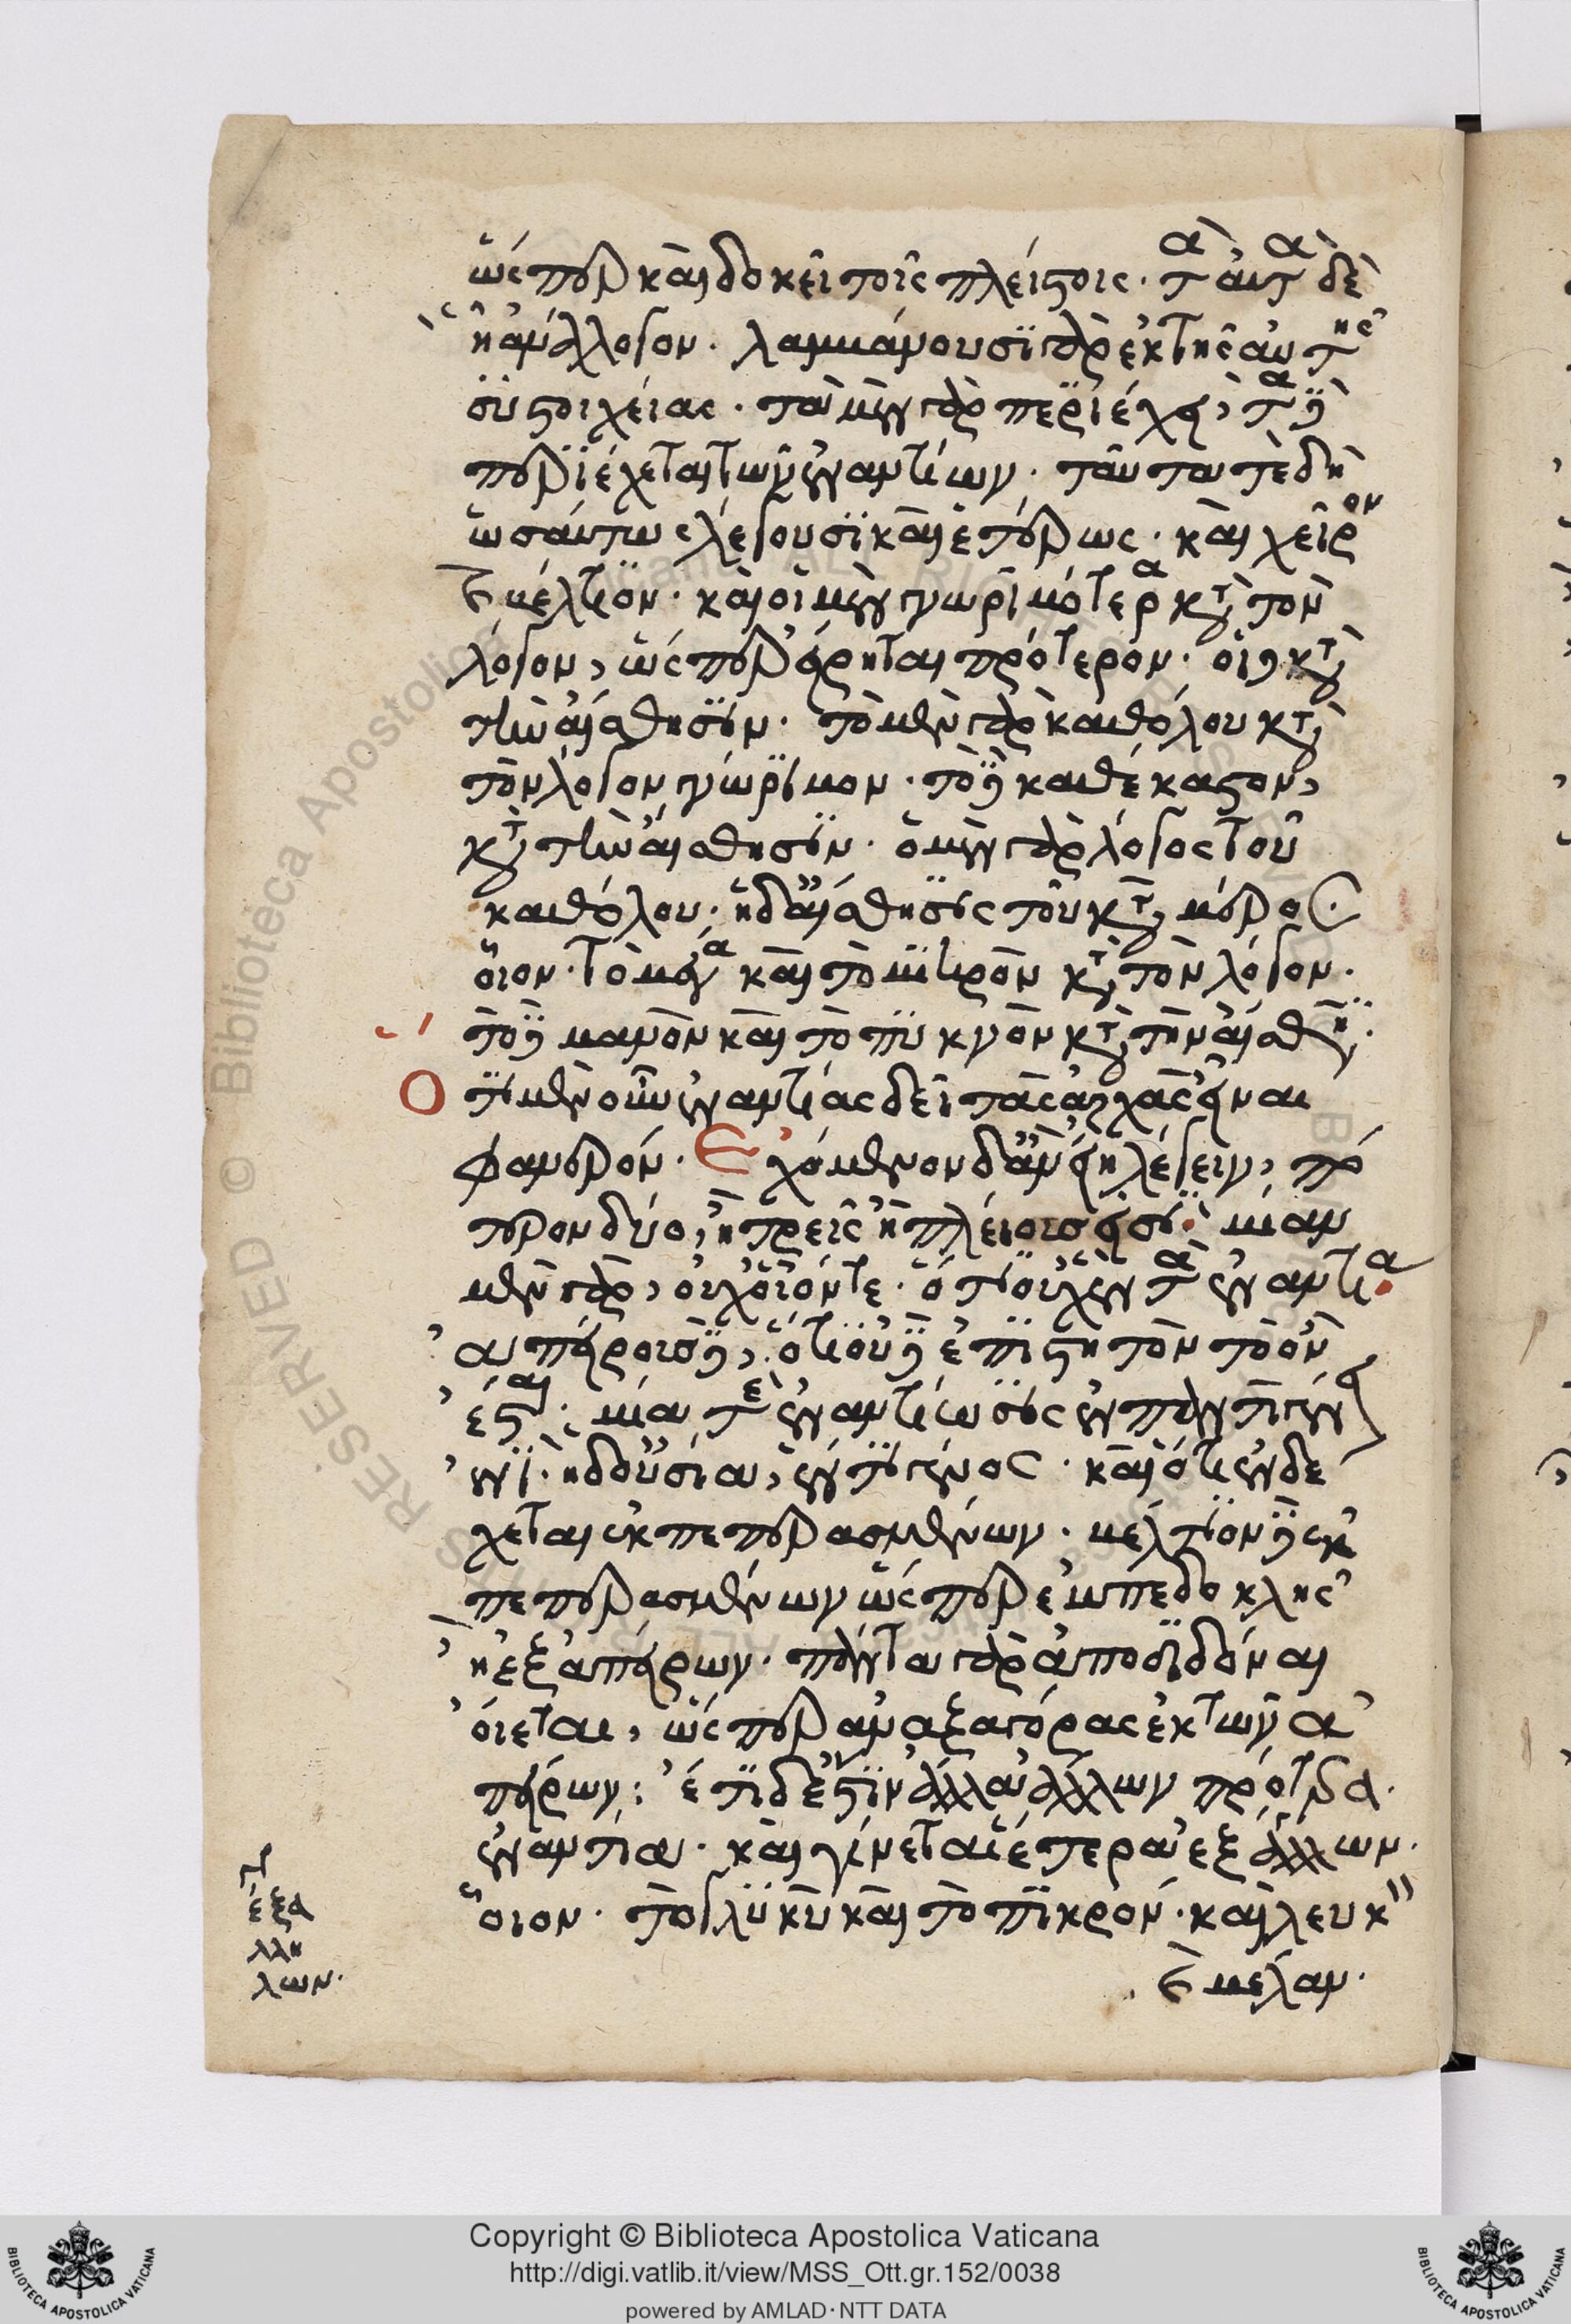 ὥσπερ καὶ δοκεῖ τοῖς πλείστοις· ταυτὰ δὲ
ἧ ἀνάλογον· λαμβάνουσι γὰρ ἐκ τῆς αὐτῆς
συστοιχείας· τὰ μὲν γὰρ περιέχει, τὰ δὲ
περιέχεται τῶν ἐναντίων· ταύτά τε δὴ
ὡσαύτως λέγουσι καὶ ἑτέρως· καὶ χεῖρον
καὶ βέλτιον· καὶ οἱ μὲν γνωριμότερα κατὰ τὸν
λόγον, ὥσπερ εἴρηται πρότερον· οἱ δὲ κατὰ
τὴν αἴσθησιν· τὸ μὲν γὰρ καθόλου κατὰ
τὸν λόγον γνώριμον· τὸ δὲ καθέκαστον,
κατὰ τὴν αἴσθησιν· ὁ μὲν γὰρ λόγος τοῦ
καθόλου· ἡ δ' αἴσθησις τοῦ κατὰ μέρος·
οἷον· τὸ μέγα καὶ τὸ μικρὸν κατὰ τὸν λόγον·
τὸ δὲ μανὸν καὶ τὸ πυκνὸν κατὰ τὴν αἴσθησιν·
Ὅτι μὲν οὖν ἐναντίας δεῖ τὰς ἀρχὰς εἶναι
φανερόν· Ἐχόμενον δ' ἂν εἴη λέγειν, πό
τερον δύο, ἢ τρεῖς ἢ πλείους εἰσί· μίαν
μὲν γὰρ, οὐχ οἷόν τε· ὅτι οὐχ ἓν τὰ ἐναντία·
ἀπείρους δὲ, ὅτι οὐδὲ ἐπιστητὸν τὸ ὂν
ἔσται· μία τε ἐναντίωσις ἐν παντὶ γένει
ἑνί· ἡ δ' οὐσία, ἕν τι γένος· καὶ ὅτι ἐνδέ
χεται ἐκ πεπερασμένων· βέλτιον δὲ ἐκ
πεπερασμένων ὥσπερ ἐμπεδοκλῆς
ἢ ἐξ ἀπείρων· πάντα γὰρ ἀποδιδόναι
οἴεται, ὥσπερ ἀναξαγόρας ἐκ τῶν ἀ
πείρων: ἔτι δέ ἐστιν ἄλλα ἄλλων πρότερα
ἐναντία· καὶ γίνεται ἕτερα ἐξ ἄλλων·
οἷον· τὸ γλυκὺ καὶ τὸ πικρόν· καὶ λευκὸν
καὶ μέλαν·
ἐξ ἀ
λλή
λων·
Copyright © Biblioteca Apostolica Vaticana
http://digi.vatlib.it/view/MSS_Ott.gr.152/0038
powered by AMLAD·NTT DATA